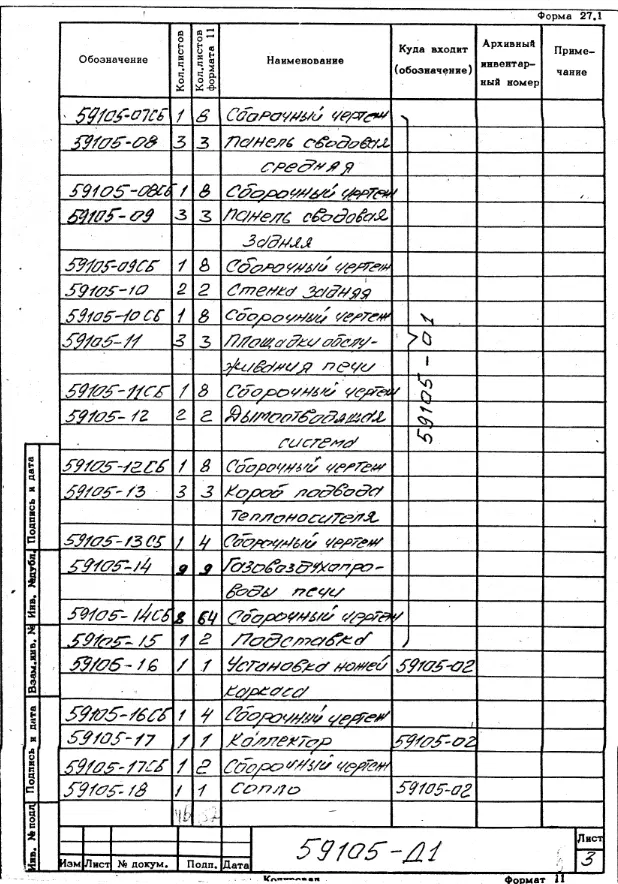 Форма 27.1
Обозначение Кол.листов Кол.листов формата 11 Наименование Куда входит (обозначение) Архивный инвентар- ный номер Приме- чание
59105-07СБ 1 8 Сборочный чертеж
59105-08 3 3 Панель сводовая
средняя
59105-08СБ 1 8 Сборочный чертеж
59105-09 3 3 Панель сводовая
задняя
59105-09СБ 1 8 Сборочный чертеж
59105-10 2 2 Стенка задняя
59105-10СБ 1 8 Сборочный чертеж
59105-11 3 3 Площадки обслу-
живания печи
59105-11СБ 1 8 Сборочный чертеж
59105-12 2 2 Дымоотводящая
система
59105-12СБ 1 8 Сборочный чертеж
59105-13 3 3 Короб подвода
теплоносителя
59105-13СБ 1 4 Сборочный чертеж
59105-14 9 9 Газовоздухопро-
воды печи
59105-14СБ 8 64 Сборочный чертеж
59105-15 1 2 Подставка
59105-01
59105-16 1 1 Установка ножей 59105-02
каркаса
59105-16СБ 1 4 Сборочный чертеж
59105-17 1 1 Коллектор 59105-02
59105-17СБ 1 2 Сборочный чертеж
59105-18 1 1 Сопло 59105-02
Инв. № подл.
Подпись и дата
Взам.инв. №
Инв. № дубл.
Подпись и дата
Изм Лист № докум. Подп. Дата
59105-Д1
Лист
3
Копировал Формат 11